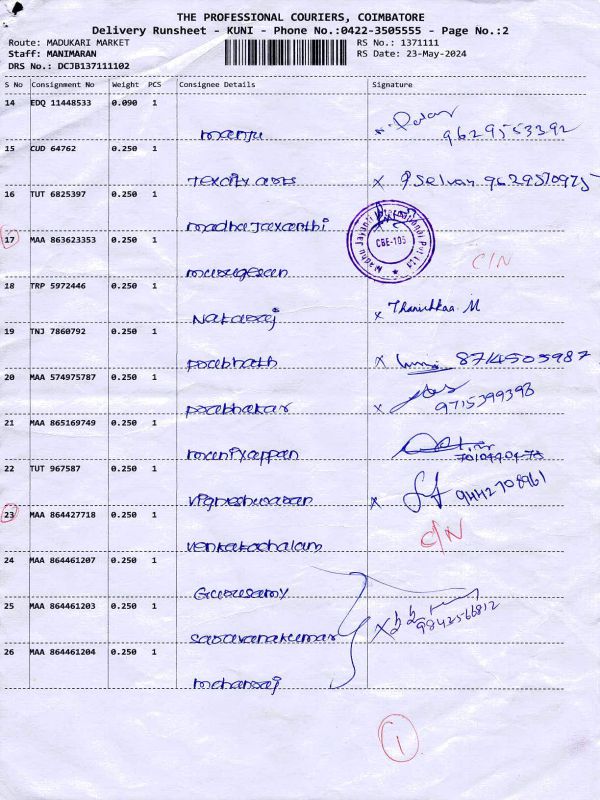 THE PROFESSIONAL COURIERS, COIMBATORE
Delivery Runsheet - KUNI - Phone No.:0422-3505555 - Page No.:2
Route: MADUKARI MARKET RS No.: 1371111
Staff: MANIMARAN RS Date: 23-May-2024
DRS No.: DCJB137111102
S No Consignment No Weight PCS Consignee Details Signature
14 EDQ 11448533 0.090 1
manju 9629553392
15 CUD 64762 0.250 1
Texcity arts X P.Selvan 9629570975
16 TUT 6825397 0.250 1
madha jayanthi
17 MAA 863623353 0.250 1
Madhu Jayanti International Pvt Ltd
CBE-105
murugesan C/N
18 TRP 5972446 0.250 1
Nataraj x Thanushkaa. M
19 TNJ 7860792 0.250 1
prabhath X 8714505987
20 MAA 574975787 0.250 1
prabhakar x 9715399398
21 MAA 865169749 0.250 1
muniyappan
22 TUT 967587 0.250 1
vigneshwaran x 9442708961
23 MAA 864427718 0.250 1
venkatachalam C/N
24 MAA 864461207 0.250 1
Gurusamy
25 MAA 864461203 0.250 1
saravanakumar X 9842566812
26 MAA 864461204 0.250 1
mohanraj
1